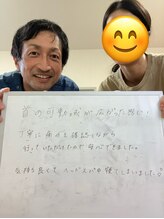 首の可動域が広がった感じ！
丁寧に痛みを確認しながら
行っていただけたので安心できました。
気持ち良くて ヘッドスパ中 寝てしまいました。